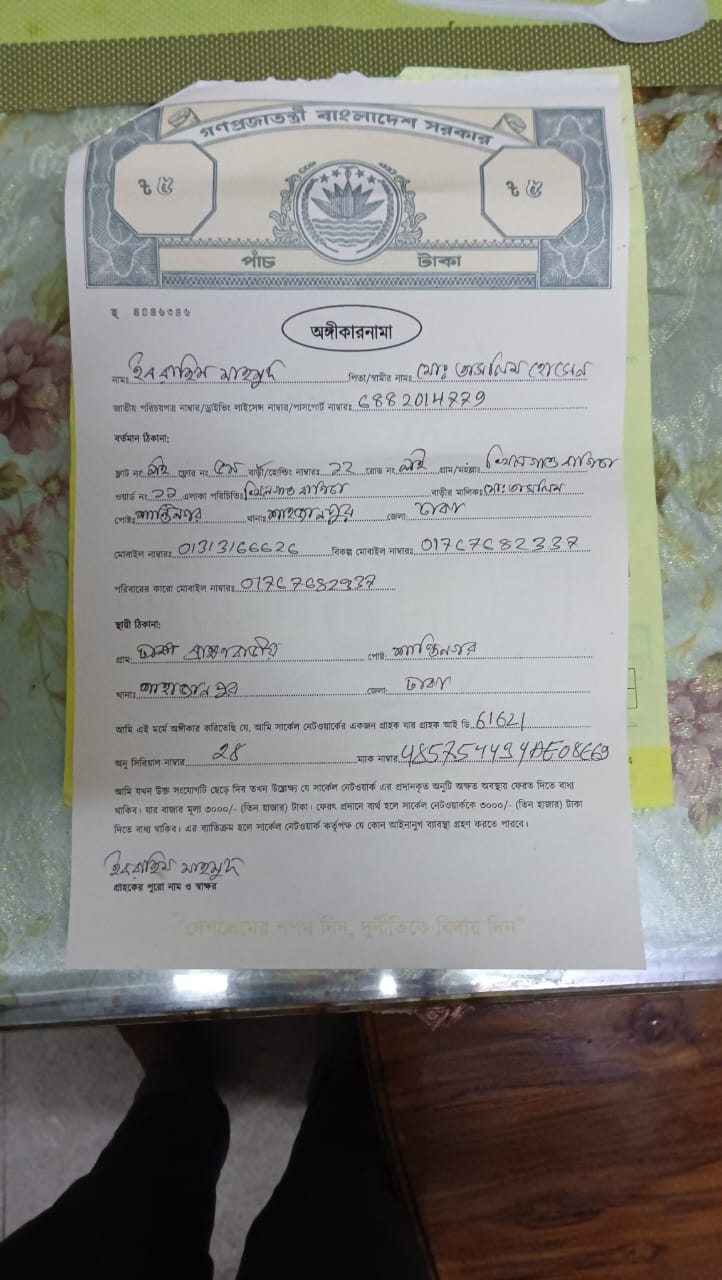 গণপ্রজাতন্ত্রী বাংলাদেশ সরকার
৳ ৫ ৳ ৫
পাঁচ টাকা
অঙ্গীকারনামা
নামঃ ইবরাহিম মাহমুদ পিতা/স্বামীর নামঃ মোঃ তাজলিম হোসেন
জাতীয় পরিচয়পত্র নাম্বার/ড্রাইভিং লাইসেন্স নাম্বার/পাসপোর্ট নাম্বারঃ
বর্তমান ঠিকানা:
ফ্লাট নং নাই ফ্লোর নং ৫ম বাড়ী/হোল্ডিং নাম্বারঃ ২২ রোড নং নাই গ্রাম/মহল্লাঃ
ওয়ার্ড নং এলাকা পরিচিতিঃ বাড়ীর মালিকঃ মোঃ তাজলিম
পোষ্টঃ শান্তিনগর থানাঃ শাহজানপুর জেলা: ঢাকা
মোবাইল নাম্বারঃ 01313166626 বিকল্প মোবাইল নাম্বারঃ
পরিবারের কারো মোবাইল নাম্বারঃ
স্থায়ী ঠিকানা:
গ্রাম: ঢাকা পোষ্ট: শান্তিনগর
থানাঃ শাহাজানপুর জেলা: ঢাকা
আমি এই মর্মে অঙ্গীকার করিতেছি যে, আমি সার্কেল নেটওয়ার্কের একজন গ্রাহক যার গ্রাহক আই ডি. 61621
অনু সিরিয়াল নাম্বার 28 ম্যাক নাম্বার
আমি যখন উক্ত সংযোগটি ছেড়ে দিব তখন উল্লেক্ষ্য যে সার্কেল নেটওয়ার্ক এর প্রদানকৃত অনুটি অক্ষত অবস্থায় ফেরত দিতে বাধ্য
থাকিব। যার বাজার মূল্য ৩০০০/- (তিন হাজার) টাকা। ফেরৎ প্রদানে ব্যর্থ হলে সার্কেল নেটওয়ার্ককে ৩০০০/- (তিন হাজার) টাকা
দিতে বাধ্য থাকিব। এর ব্যতিক্রম হলে সার্কেল নেটওয়ার্ক কর্তৃপক্ষ যে কোন আইনানুগ ব্যবস্থা গ্রহণ করতে পারবে।
ইবরাহিম মাহমুদ
গ্রাহকের পুরো নাম ও স্বাক্ষর
"দেশপ্রেমের শপথ নিন, দুর্নীতিকে বিদায় দিন"